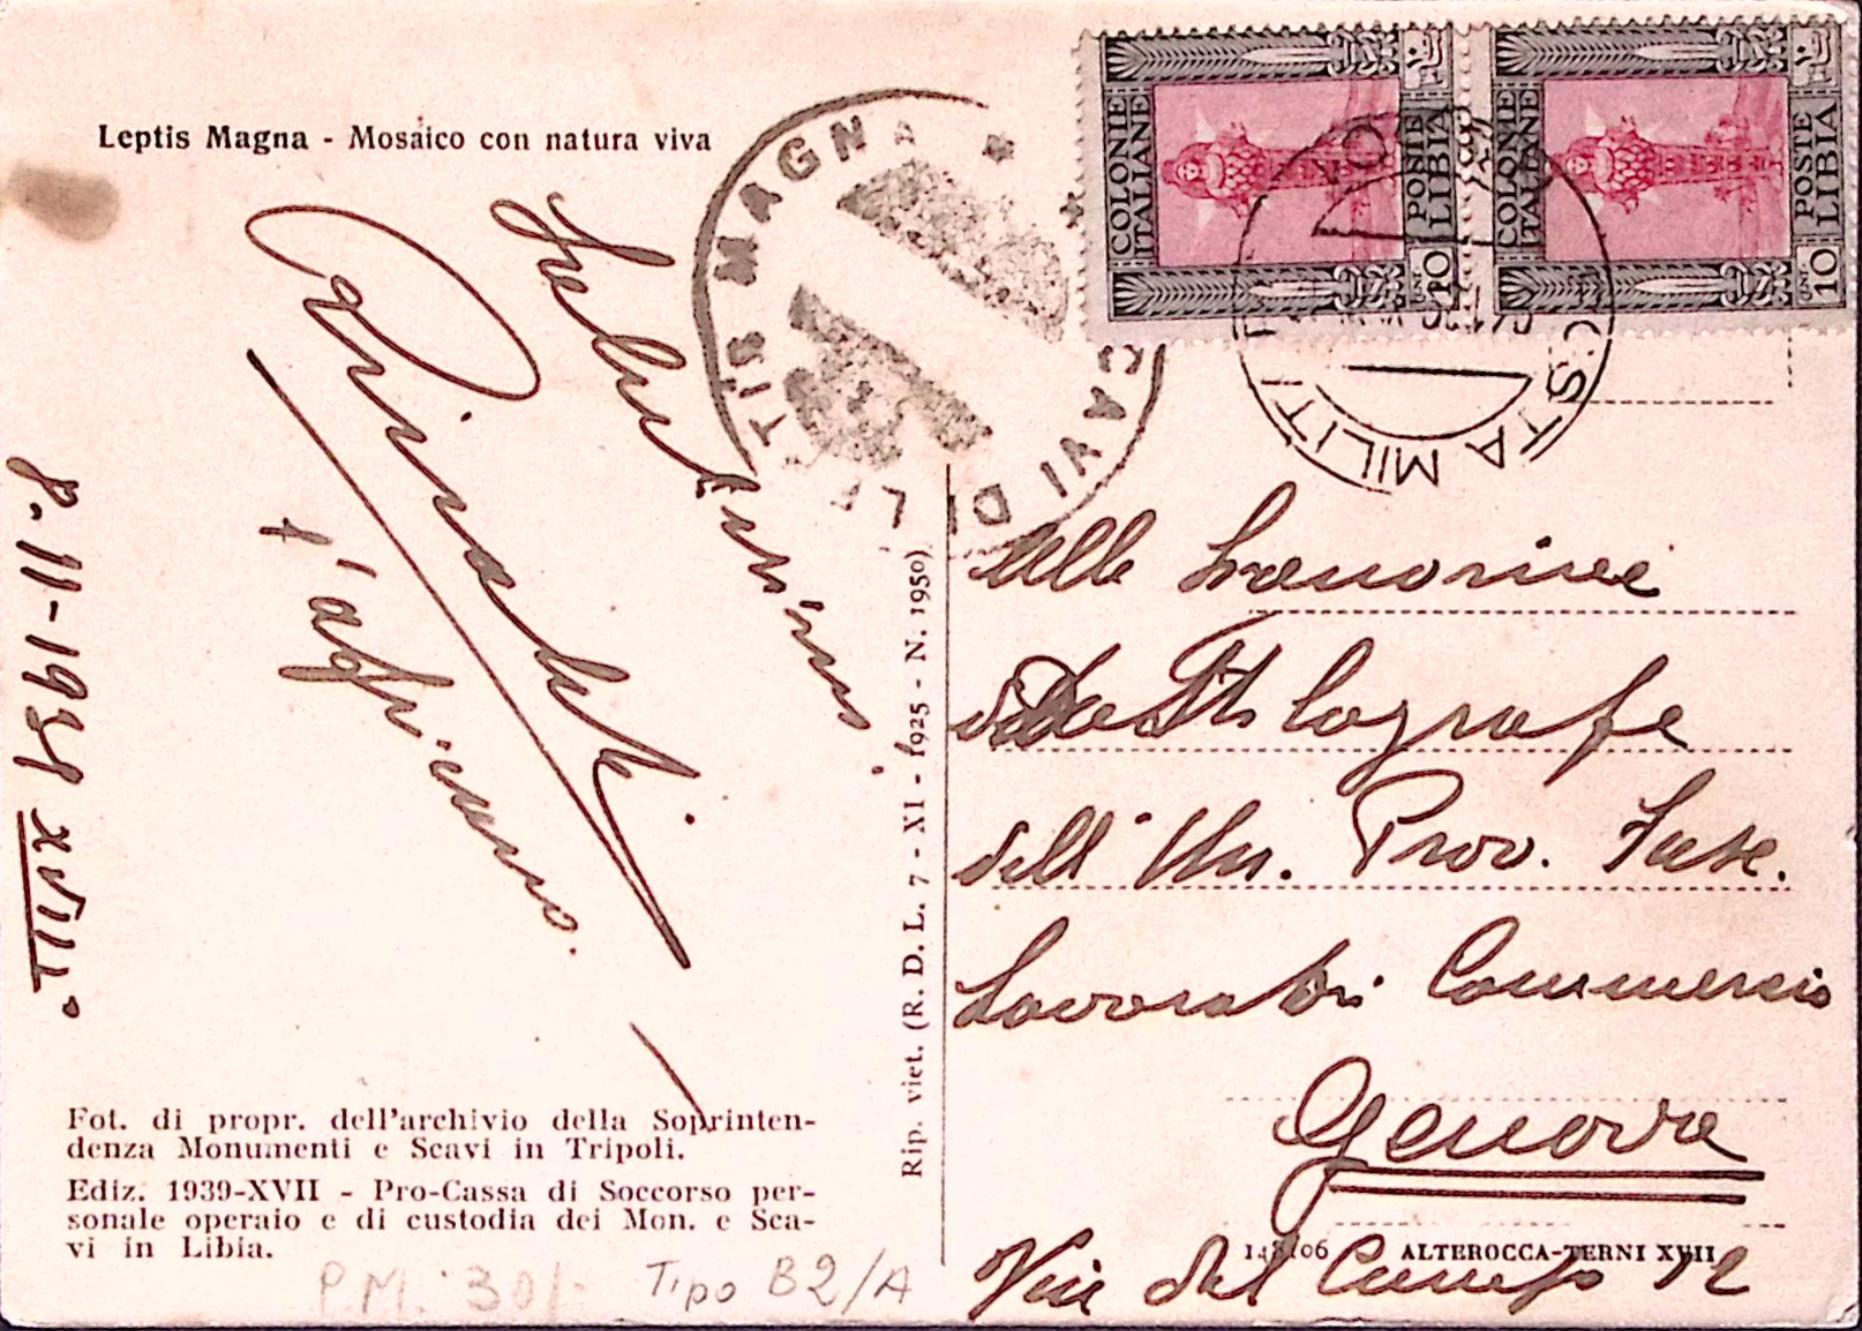 Leptis Magna - Mosaico con natura viva
LEPTIS MAGNA * * SCAVI DI
COLONIE ITALIANE
POSTE LIBIA
CENT 10
COLONIE ITALIANE
POSTE LIBIA
CENT 10
POSTA MILIT
Cari saluti
8-11-1939 XVIII°
Alle Signorine
Dattilografe
dell' Un. Prov. Fasc.
Lavoratori Commercio
Genova
Via del Campo 12
Rip. viet. (R. D. L. 7 - XI - 1925 - N. 1950)
Fot. di propr. dell'archivio della Soprinten-
denza Monumenti e Scavi in Tripoli.
Ediz. 1939-XVII - Pro-Cassa di Soccorso per-
sonale operaio e di custodia dei Mon. e Sca-
vi in Libia.
ALTEROCCA-TERNI XVII
P.M. 30/- Tipo B2/A